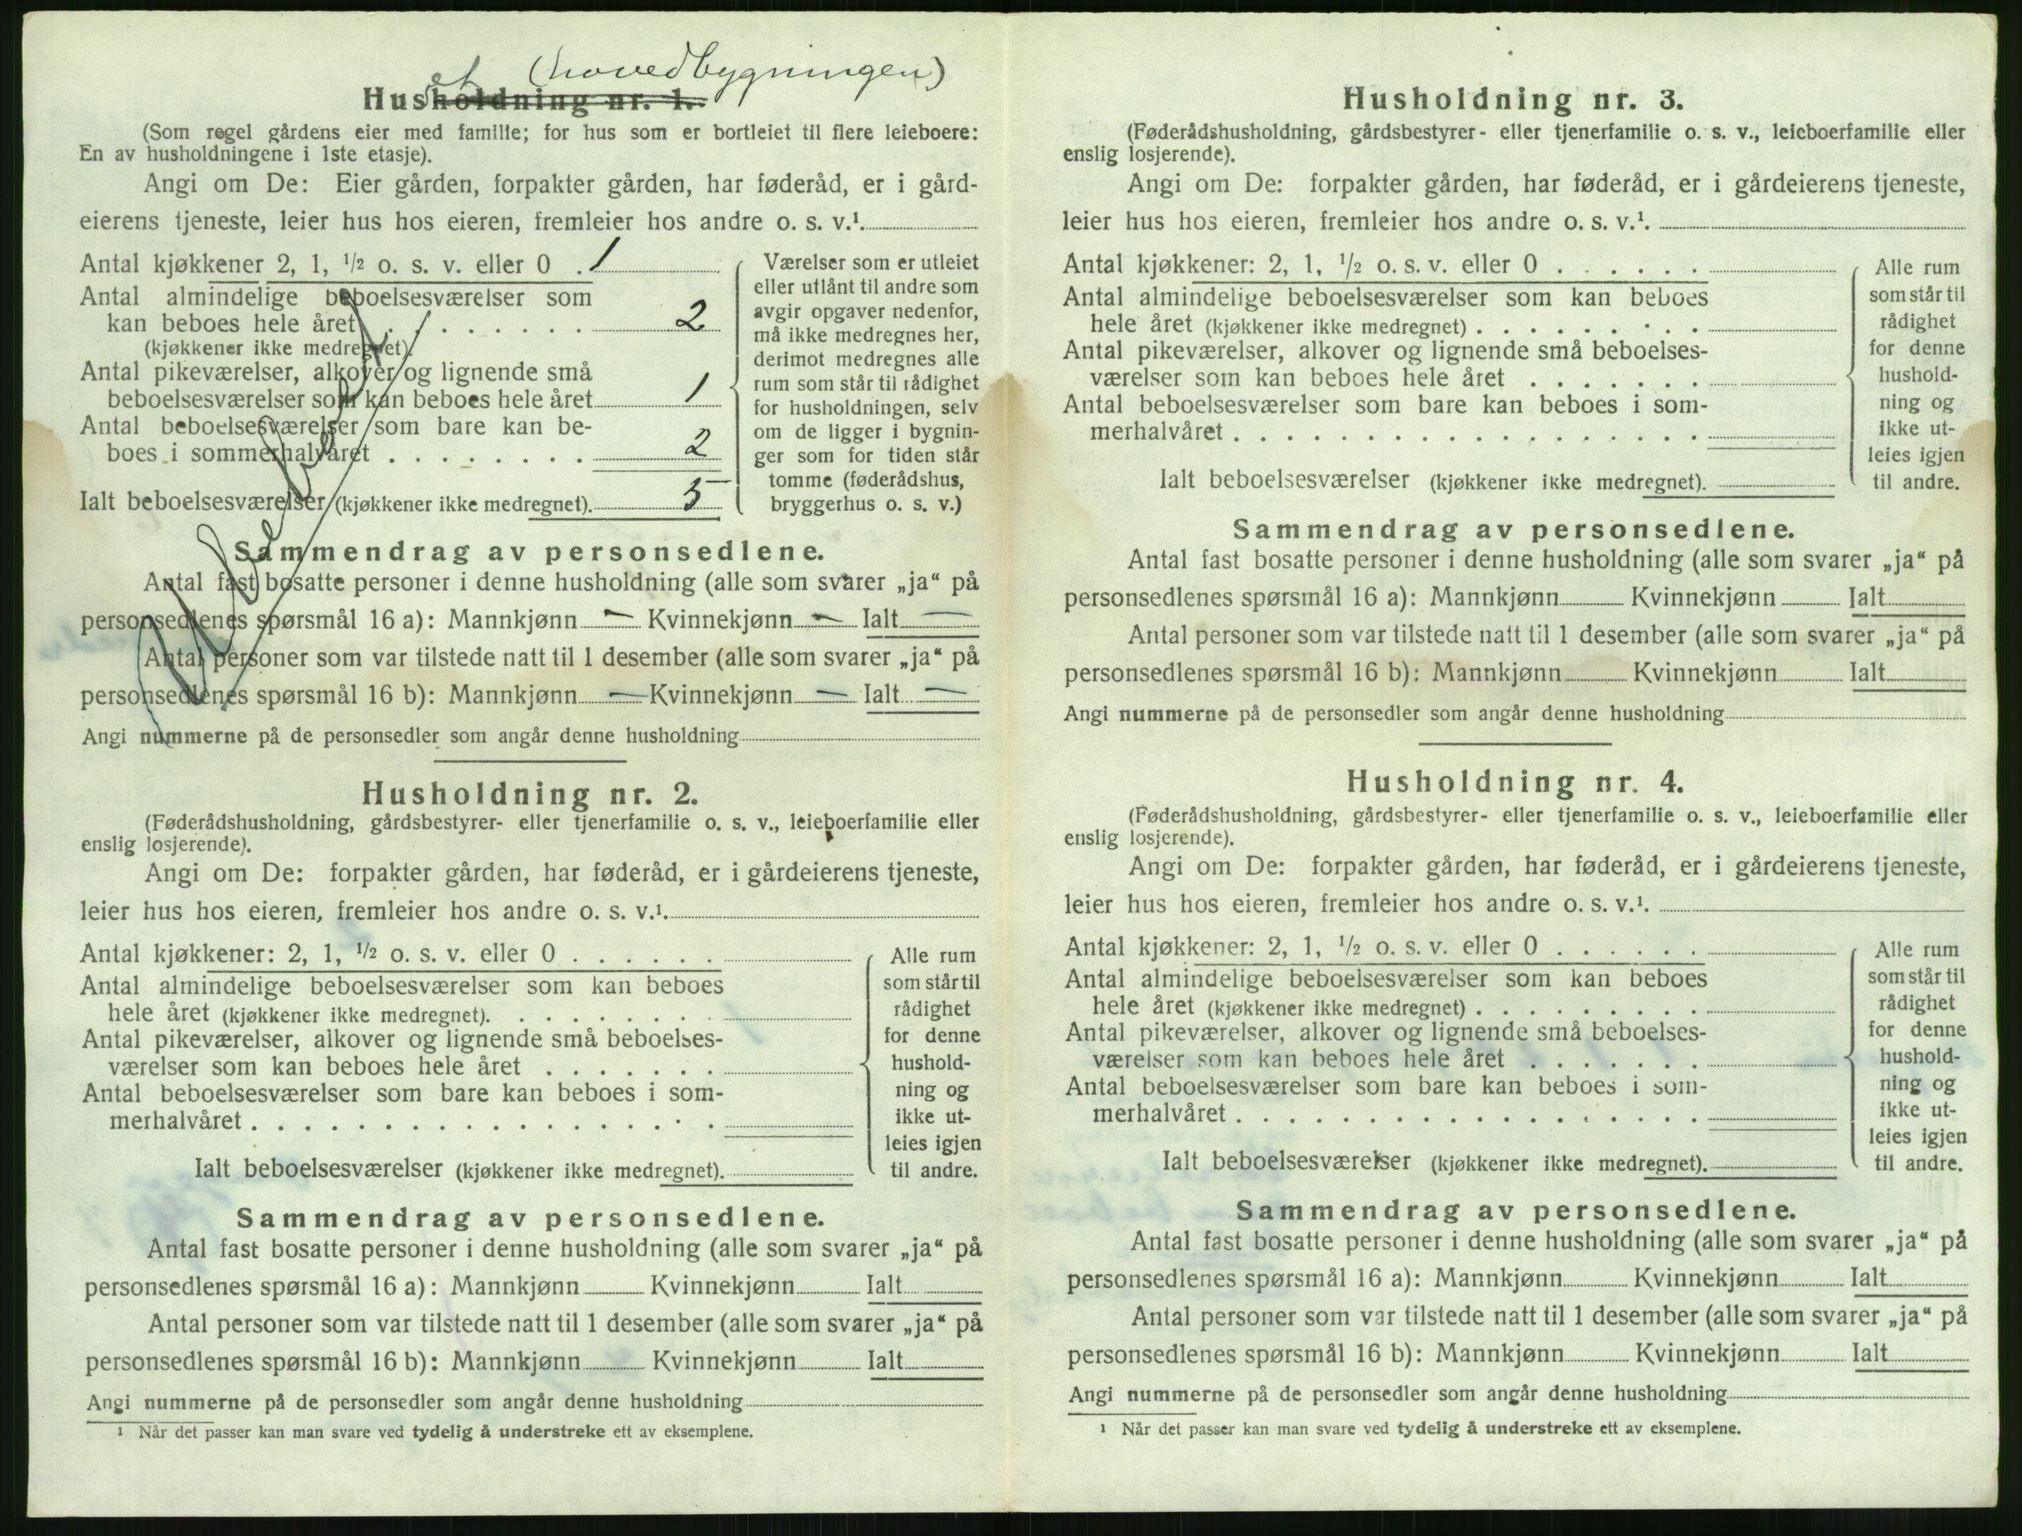 et (hovedbygningen)
Husholdning nr. 1.
(Som regel gårdens eier med familie; for hus som er bortleiet til flere leieboere:
En av husholdningene i 1ste etasje).
Angi om De: Eier gården, forpakter gården, har føderåd, er i gård-
eierens tjeneste, leier hus hos eieren, fremleier hos andre o. s. v.¹.
Antal kjøkkener 2, 1, ½ o. s. v. eller 0 . 1
Antal almindelige beboelsesværelser som
kan beboes hele året . . . . . . . . 2
(kjøkkener ikke medregnet).
Antal pikeværelser, alkover og lignende små
beboelsesværelser som kan beboes hele året 1
Antal beboelsesværelser som bare kan be-
boes i sommerhalvåret . . . . . . . 2
Ialt beboelsesværelser (kjøkkener ikke medregnet). 5
Værelser som er utleiet
eller utlånt til andre som
avgir opgaver nedenfor,
må ikke medregnes her,
derimot medregnes alle
rum som står til rådighet
for husholdningen, selv
om de ligger i bygnin-
ger som for tiden står
tomme (føderådshus,
bryggerhus o. s. v.)
Ubebeet
Sammendrag av personsedlene.
Antal fast bosatte personer i denne husholdning (alle som svarer „ja“ på
personsedlenes spørsmål 16 a): Mannkjønn — Kvinnekjønn — Ialt —
Antal personer som var tilstede natt til 1 desember (alle som svarer „ja“ på
personsedlenes spørsmål 16 b): Mannkjønn — Kvinnekjønn — Ialt —
Angi nummerne på de personsedler som angår denne husholdning
Husholdning nr. 2.
(Føderådshusholdning, gårdsbestyrer- eller tjenerfamilie o. s. v., leieboerfamilie eller
enslig losjerende).
Angi om De: forpakter gården, har føderåd, er i gårdeierens tjeneste,
leier hus hos eieren, fremleier hos andre o. s. v.¹.
Antal kjøkkener: 2, 1, ½ o. s. v. eller 0 . . . . . .
Antal almindelige beboelsesværelser som kan beboes
hele året (kjøkkener ikke medregnet). . . . . . . . .
Antal pikeværelser, alkover og lignende små beboelses-
værelser som kan beboes hele året . . . . . . .
Antal beboelsesværelser som bare kan beboes i som-
merhalvåret . . . . . . . . . . . . . . . . . .
Ialt beboelsesværelser (kjøkkener ikke medregnet).
Alle rum
som står til
rådighet
for denne
hushold-
ning og
ikke ut-
leies igjen
til andre.
Sammendrag av personsedlene.
Antal fast bosatte personer i denne husholdning (alle som svarer „ja“ på
personsedlenes spørsmål 16 a): Mannkjønn Kvinnekjønn Ialt
Antal personer som var tilstede natt til 1 desember (alle som svarer „ja“ på
personsedlenes spørsmål 16 b): Mannkjønn Kvinnekjønn Ialt
Angi nummerne på de personsedler som angår denne husholdning
¹ Når det passer kan man svare ved tydelig å understreke ett av eksemplene.
Husholdning nr. 3.
(Føderådshusholdning, gårdsbestyrer- eller tjenerfamilie o. s. v., leieboerfamilie eller
enslig losjerende).
Angi om De: forpakter gården, har føderåd, er i gårdeierens tjeneste,
leier hus hos eieren, fremleier hos andre o. s. v.¹.
Antal kjøkkener: 2, 1, ½ o. s. v. eller 0 . . . . . .
Antal almindelige beboelsesværelser som kan beboes
hele året (kjøkkener ikke medregnet) . . . . . . . . .
Antal pikeværelser, alkover og lignende små beboelses-
værelser som kan beboes hele året . . . . . . .
Antal beboelsesværelser som bare kan beboes i som-
merhalvåret . . . . . . . . . . . . . . . . . .
Ialt beboelsesværelser (kjøkkener ikke medregnet).
Alle rum
som står til
rådighet
for denne
hushold-
ning og
ikke ut-
leies igjen
til andre.
Sammendrag av personsedlene.
Antal fast bosatte personer i denne husholdning (alle som svarer „ja“ på
personsedlenes spørsmål 16 a): Mannkjønn Kvinnekjønn Ialt
Antal personer som var tilstede natt til 1 desember (alle som svarer „ja“ på
personsedlenes spørsmål 16 b): Mannkjønn Kvinnekjønn Ialt
Angi nummerne på de personsedler som angår denne husholdning
Husholdning nr. 4.
(Føderådshusholdning, gårdsbestyrer- eller tjenerfamilie o. s. v., leieboerfamilie eller
enslig losjerende).
Angi om De: forpakter gården, har føderåd, er i gårdeierens tjeneste,
leier hus hos eieren, fremleier hos andre o. s. v.¹.
Antal kjøkkener: 2, 1, ½ o. s. v. eller 0 . . . . . .
Antal almindelige beboelsesværelser som kan beboes
hele året (kjøkkener ikke medregnet) . . . . . . . . .
Antal pikeværelser, alkover og lignende små beboelses-
værelser som kan beboes hele året . . . . . . .
Antal beboelsesværelser som bare kan beboes i som-
merhalvåret . . . . . . . . . . . . . . . . . .
Ialt beboelsesværelser (kjøkkener ikke medregnet).
Alle rum
som står til
rådighet
for denne
hushold-
ning og
ikke ut-
leies igjen
til andre.
Sammendrag av personsedlene.
Antal fast bosatte personer i denne husholdning (alle som svarer „ja“ på
personsedlenes spørsmål 16 a): Mannkjønn Kvinnekjønn Ialt
Antal personer som var tilstede natt til 1 desember (alle som svarer „ja“ på
personsedlenes spørsmål 16 b): Mannkjønn Kvinnekjønn Ialt
Angi nummerne på de personsedler som angår denne husholdning
¹ Når det passer kan man svare ved tydelig å understreke ett av eksemplene.